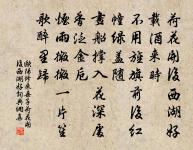 荷花開後西湖好
載酒來時
不用旌旗前後紅
幢綠蓋隨
畫船撐入花深處
香泛金卮
煙雨微微一片笙
歌醉里歸
歐陽修采桑子荷花開
後西湖好